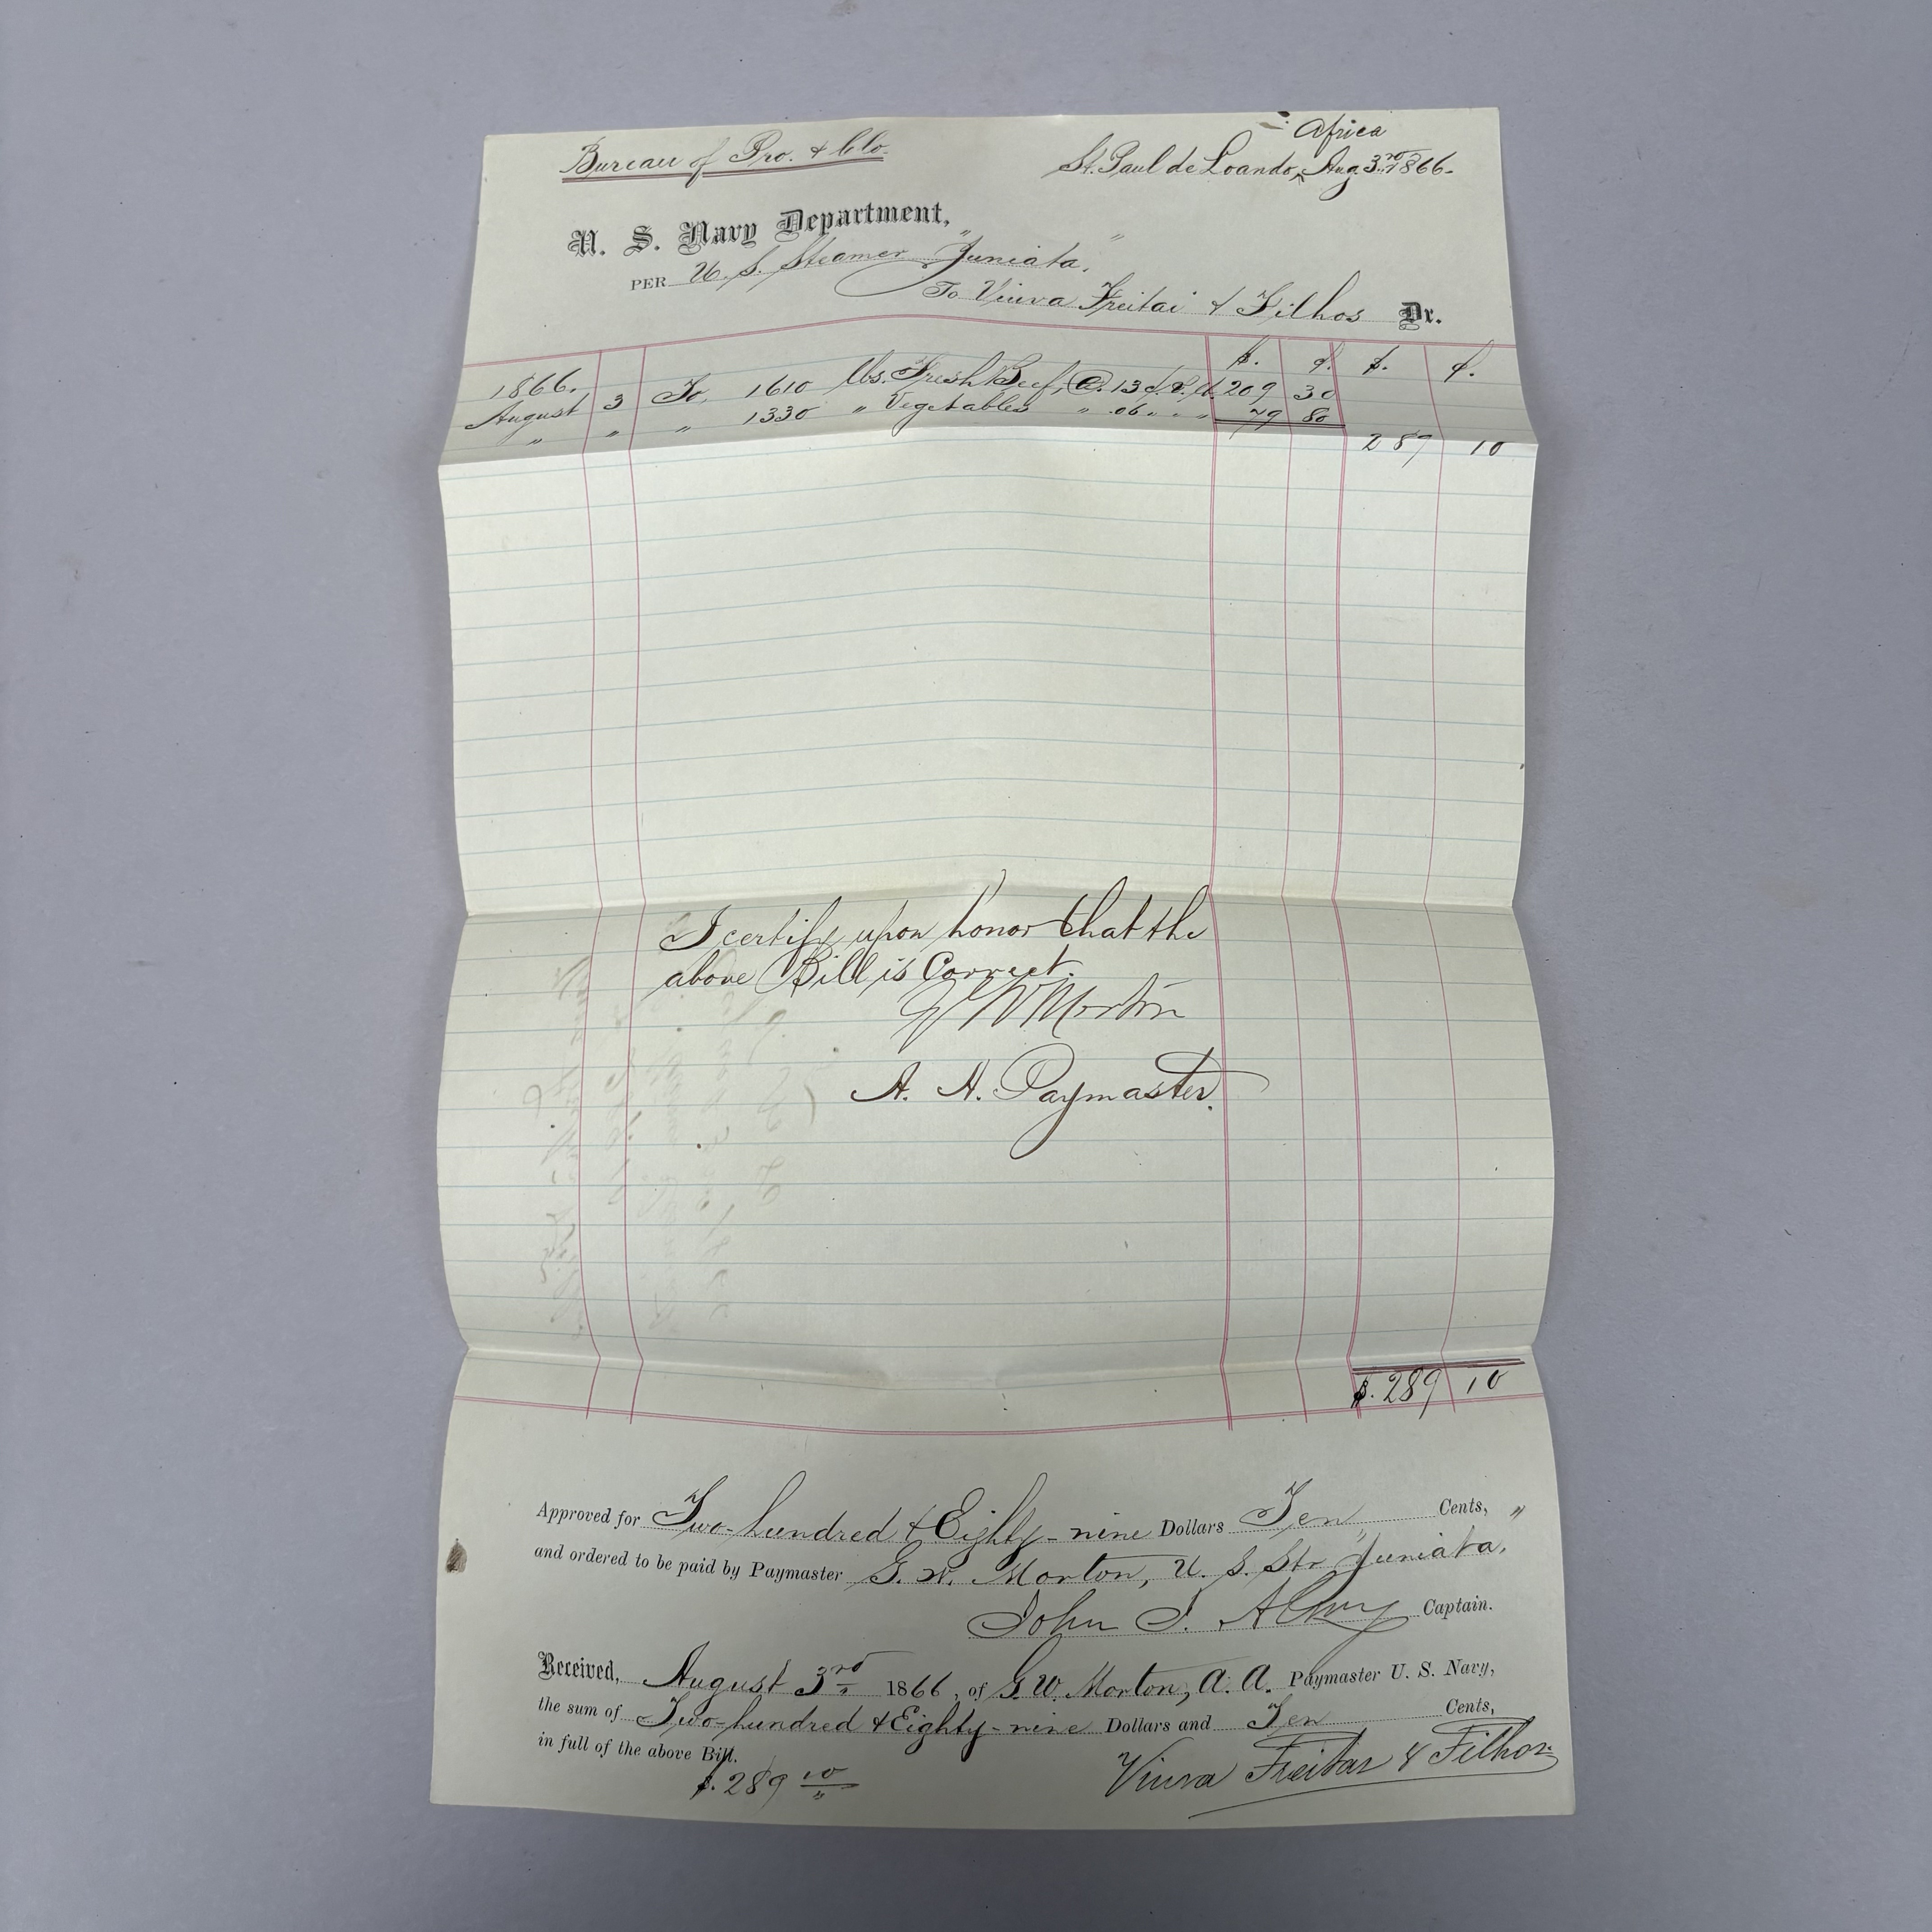 Bureau of Pro. & Clo.
Africa
St. Paul de Loando, Aug. 3rd 1866.
U. S. Navy Department,
PER U. S. Steamer "Juniata,"
To Viuva Freitai & Filhos Dr.
$. ¢. $. ¢.
1866.
August 3 To, 1610 lbs. Fresh Beef, @ .13¢ P. lb. 209 30
" " " 1330 " Vegetables " .06 " " " 79 80
289 10
I certify upon honor that the
above Bill is Correct.
G W Morton
A. A. Paymaster.
$. 289 10
Approved for Two-hundred & Eighty-nine Dollars Ten Cents,
and ordered to be paid by Paymaster G. W. Morton, U. S. Str "Juniata,"
John J. Almy Captain.
Received, August 3rd 1866, of G. W. Morton, A. A. Paymaster U. S. Navy,
the sum of Two-hundred & Eighty-nine Dollars and Ten Cents,
in full of the above Bill.
$. 289 10
Viuva Freitas & Filhos